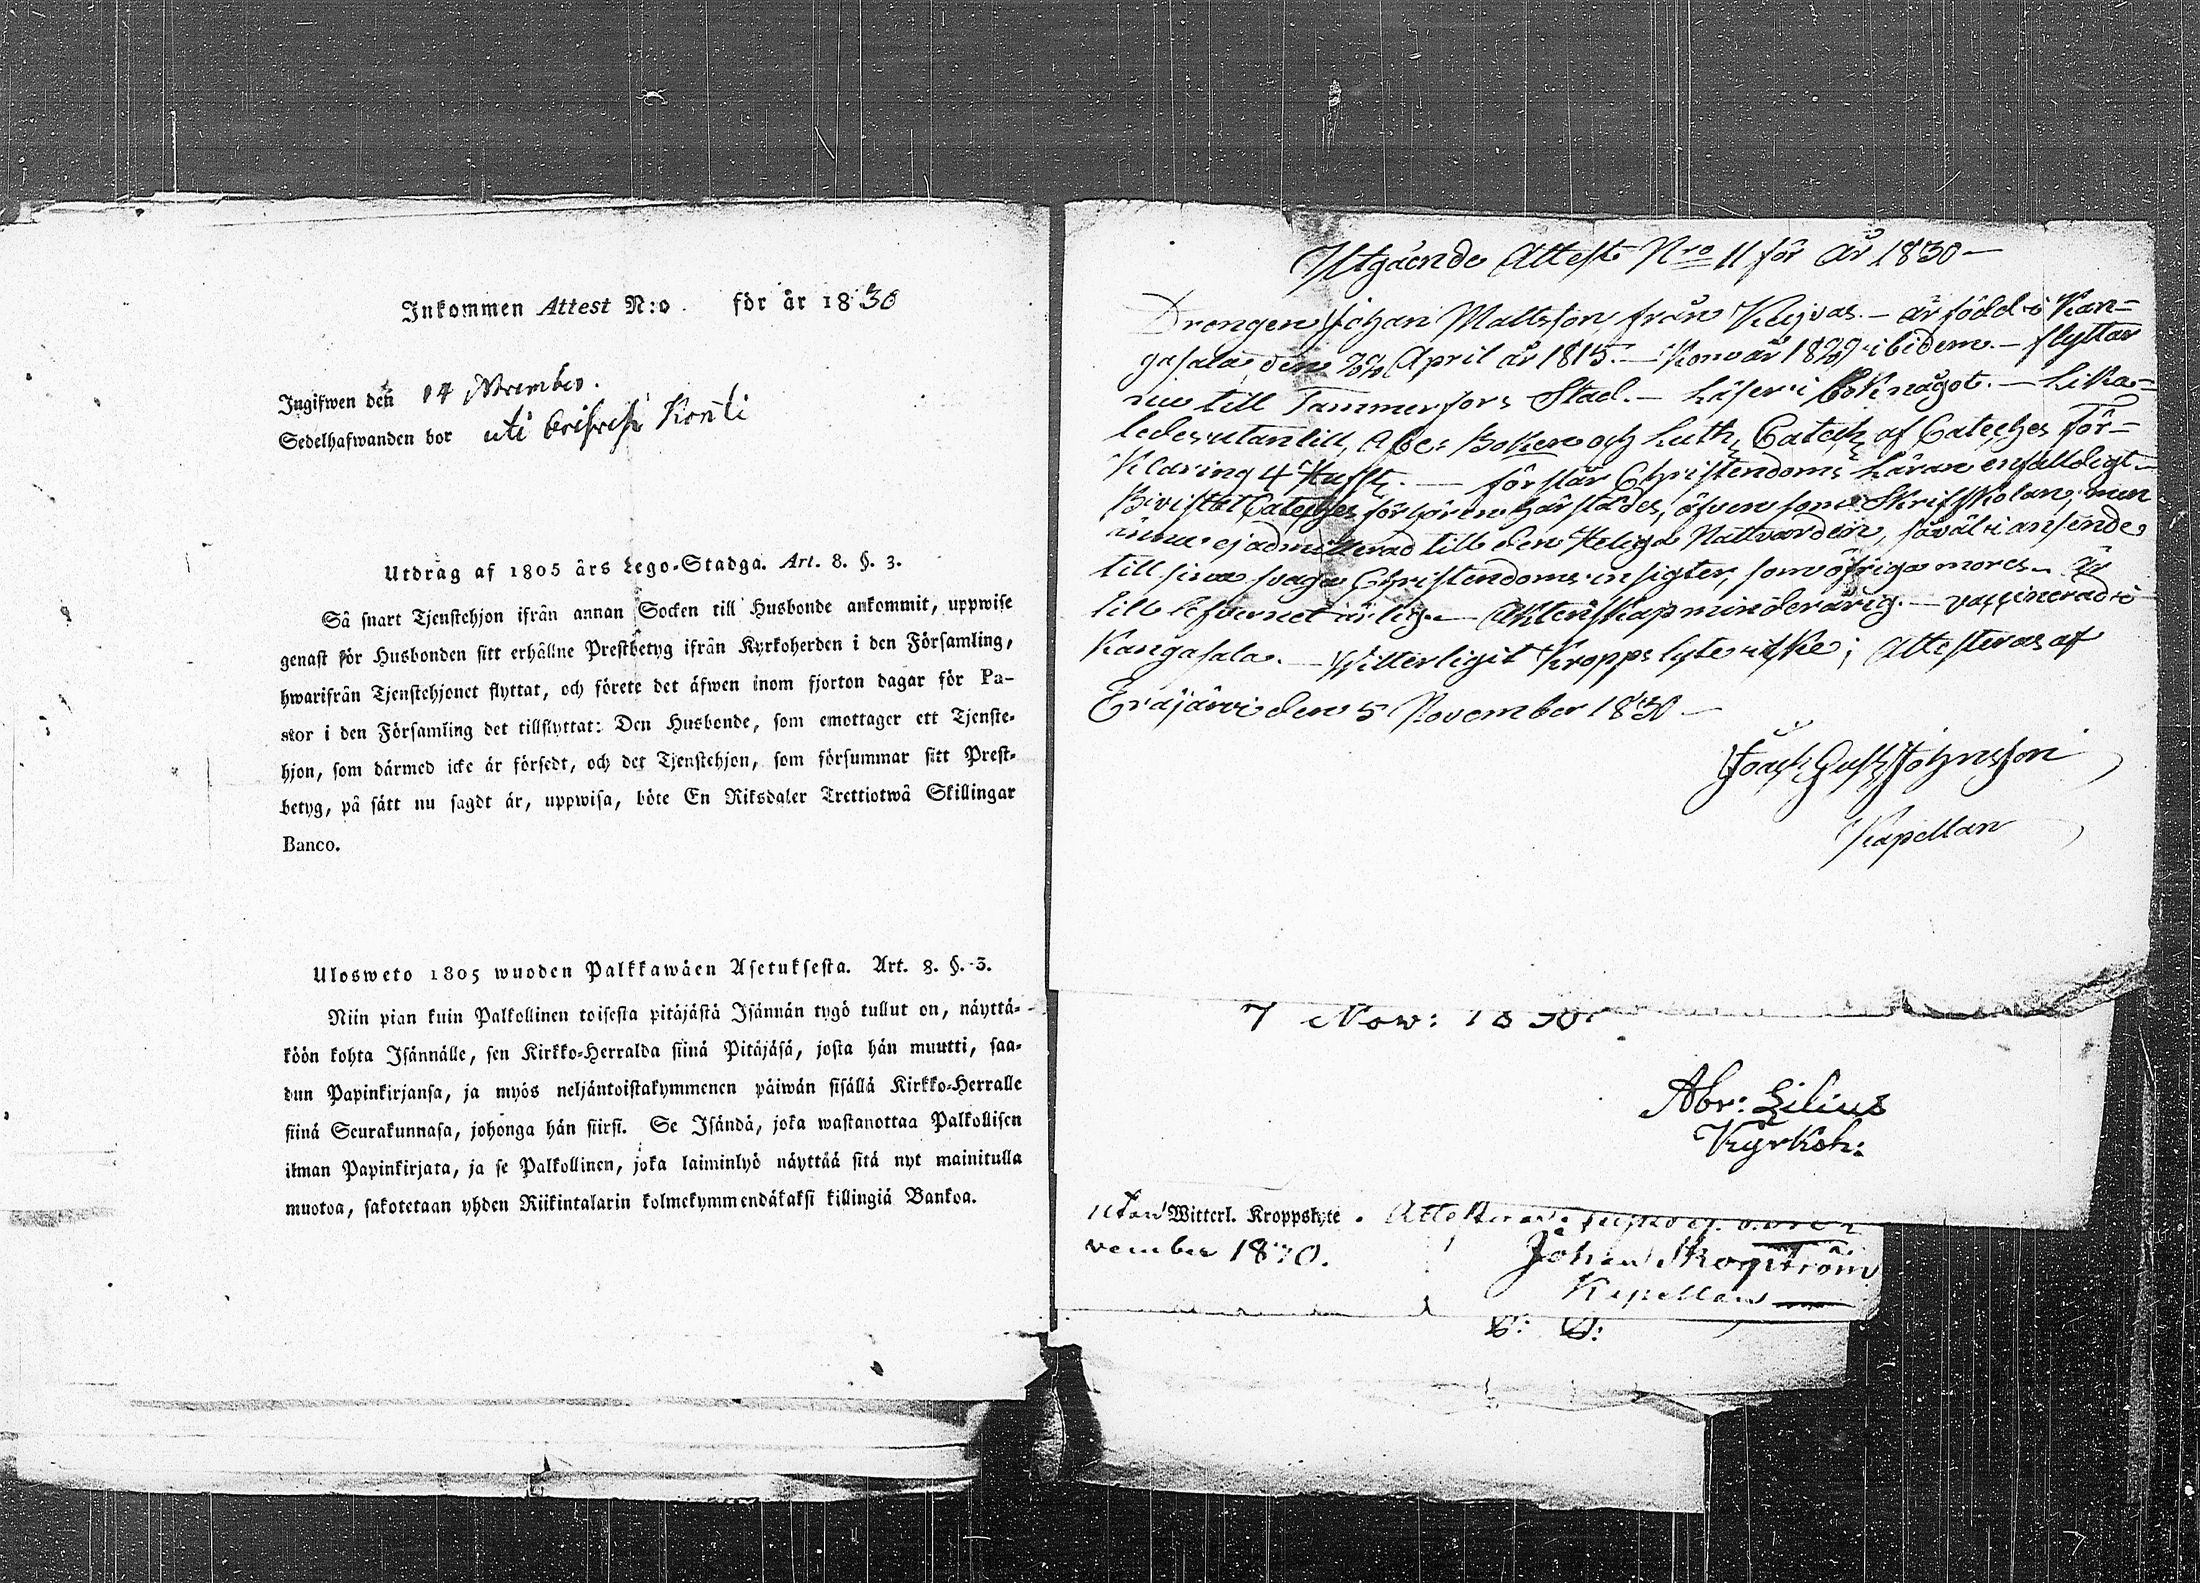 Inkommen Attest N:o för år 1830
Ingifwen den 14 November.
Sedelhafwanden bor uti Konti
Utdrag af 1805 års Lego-Stadga. Art. 8. §. 3.
Så snart Tjenstehjon ifrån annan Socken till Husbonde ankommit, uppwise
genast för Husbonden sitt erhållne Prestbetyg ifrån Kyrkoherden i den Församling,
hwarifrån Tjenstehjonet flyttat, och förete det äfwen inom fjorton dagar för Pa-
stor i den Församling det tillflyttat: Den Husbonde, som emottager ett Tjenste-
hjon, som därmed icke är försedt, och det Tjenstehjon, som försummar sitt Prest-
betyg, på sätt nu sagdt är, uppwisa, böte En Riksdaler Trettiotwå Skillingar
Banco.
Ulosweto 1805 wuoden Palkkawäen Asetuksesta. Art. 8. §. 3.
Niin pian kuin Palkollinen toisesta pitäjästä Isännän tygö tullut on, näyttä-
köön kohta Isännälle, sen Kirkko-Herralda siinä Pitäjäsä, josta hän muutti, saa-
dun Papinkirjansa, ja myös neljäntoistakymmenen päiwän sisällä Kirkko-Herralle
siinä Seurakunnasa, johonga hän siirsi. Se Isändä, joka wastanottaa Palkollisen
ilman Papinkirjata, ja se Palkollinen, joka laiminlyö näyttää sitä nyt mainitulla
muotoa, sakotetaan yhden Riikintalarin kolmekymmendäkaksi killingiä Bankoa.
Utgående Attest Nro 11 för år 1830 —
Drengen Johan Mattsson från — är född i Kan-
gasala den April år 1815. — Kom år 1829 ibidem. — flyttar
nu till Tammerfors Stad. — Läser i bok något. — Lika-
ledes utantill, Abc-Boken och Luth. Catech. af Cateches För-
klaring 4 — förstår Christendoms Läran enfalldigt —
Bivistat Cateches förhören härstädes, äfven som Skriftskolan; men
ännu ej admitterad till den Heliga Nattvarden, såväl i anseende
till sina svaga Christendoms insigter, som öfriga mores. — Är
till lefvernet ärlig. — Äktenskap minderårig. — vaccinerad i
Kangasala. — Witterligit Kroppslyte icke; Attesteras af
Eräjärvi den 5 November 1830 —
Gust. Johnsson
Kapellan
7 Nov: 1830
Abr: Lilius
Kyrkoh:
utan Witterl. Kroppslyte. Attesteras
vember 1830. Johan Skogström
Kapellan